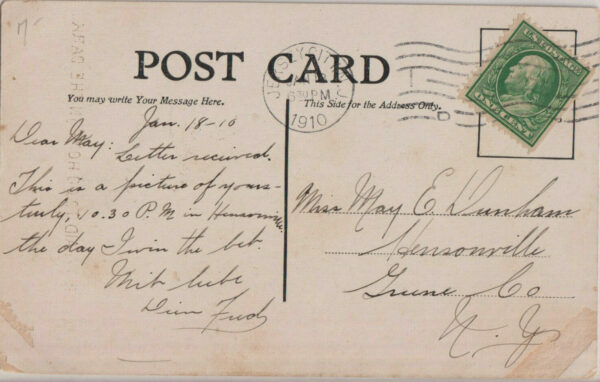 POST CARD
You may write Your Message Here.
This Side for the Address Only.
JERSEY CITY
6 30 PM
1910
D
U.S. POSTAGE
ONE CENT
Jan. 18-10
Dear May: Letter received.
This is a picture of yours-
truly, 10.30 P.M in Hensonville
the day I win the bet.
Mit lube
Dein Fred
Miss May E. Dunham
Hensonville
Greene Co
N. Y.